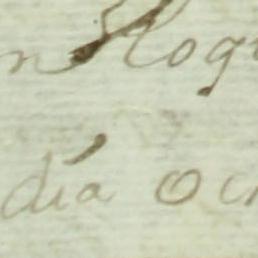 n Roq
día oc